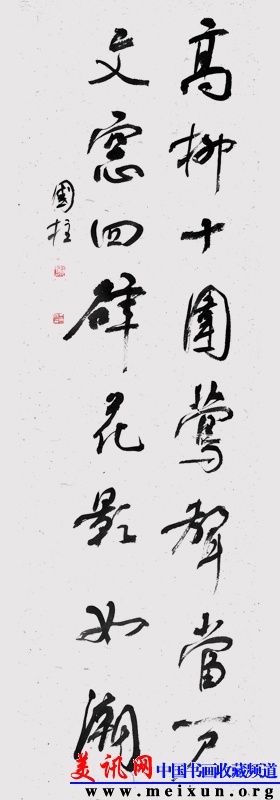 高柳十圍鶯聲當戶
文窓四辟花影如潮
國柱
美讯网 中国书画收藏频道
www.meixun.org